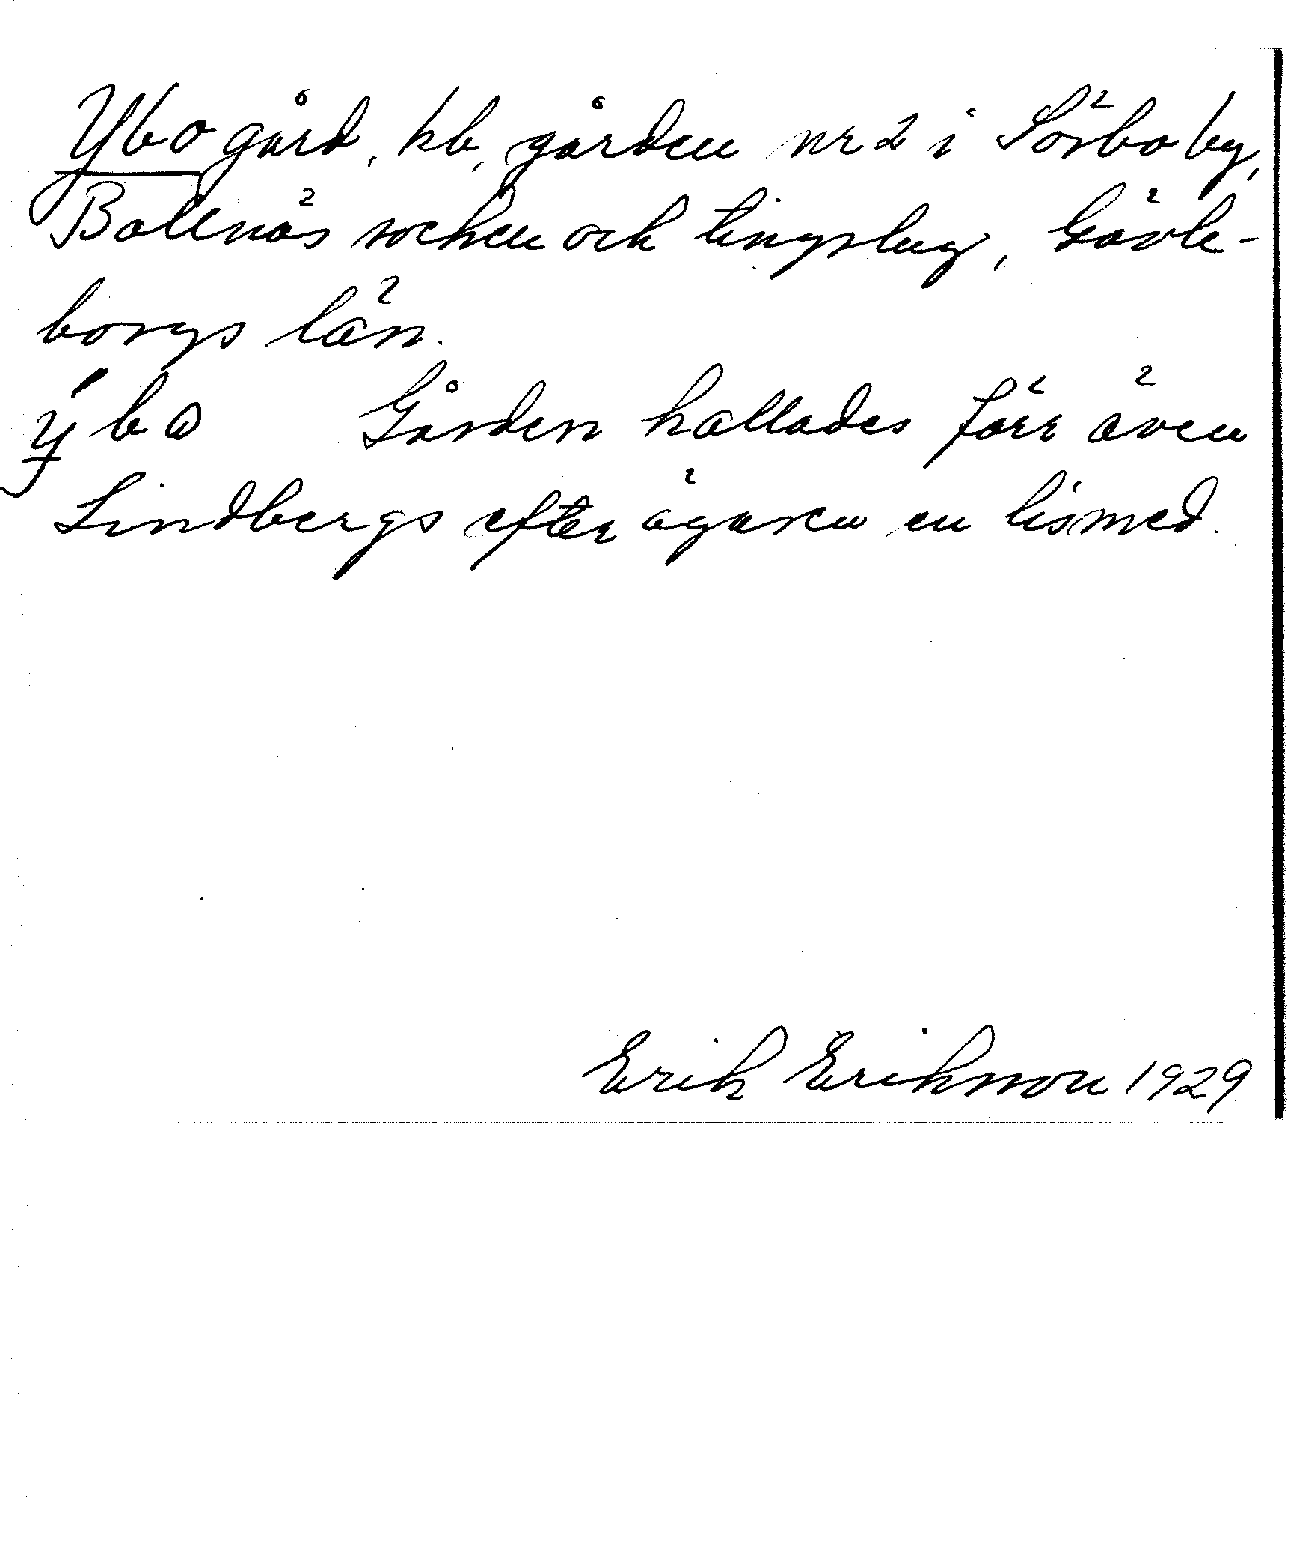 Ybo gård, kb, gården nr 2 i Sörbo by,
Bollnäs socken och tingslag, Gävle-
borgs län.
ýbo Gården kallades förr även
Lindbergs efter ägaren en lismed.
Erik Erikson 1929